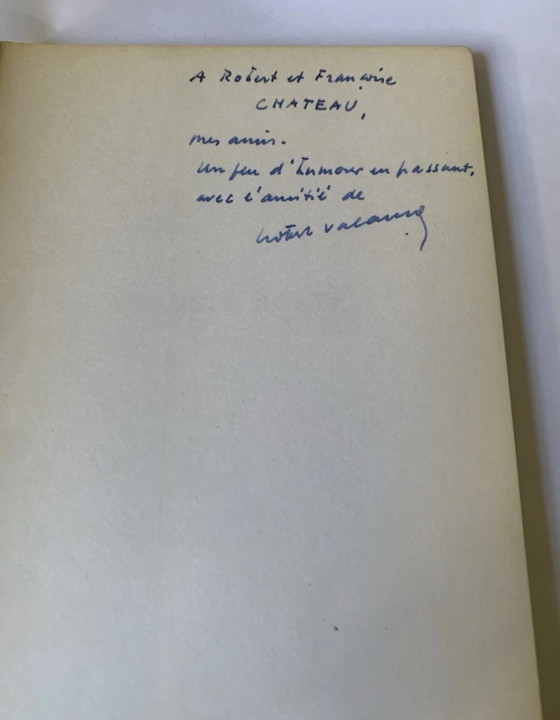 A Robert et Françoise
CHATEAU,
mes amis.
Un peu d'humour en passant,
avec l'amitié de